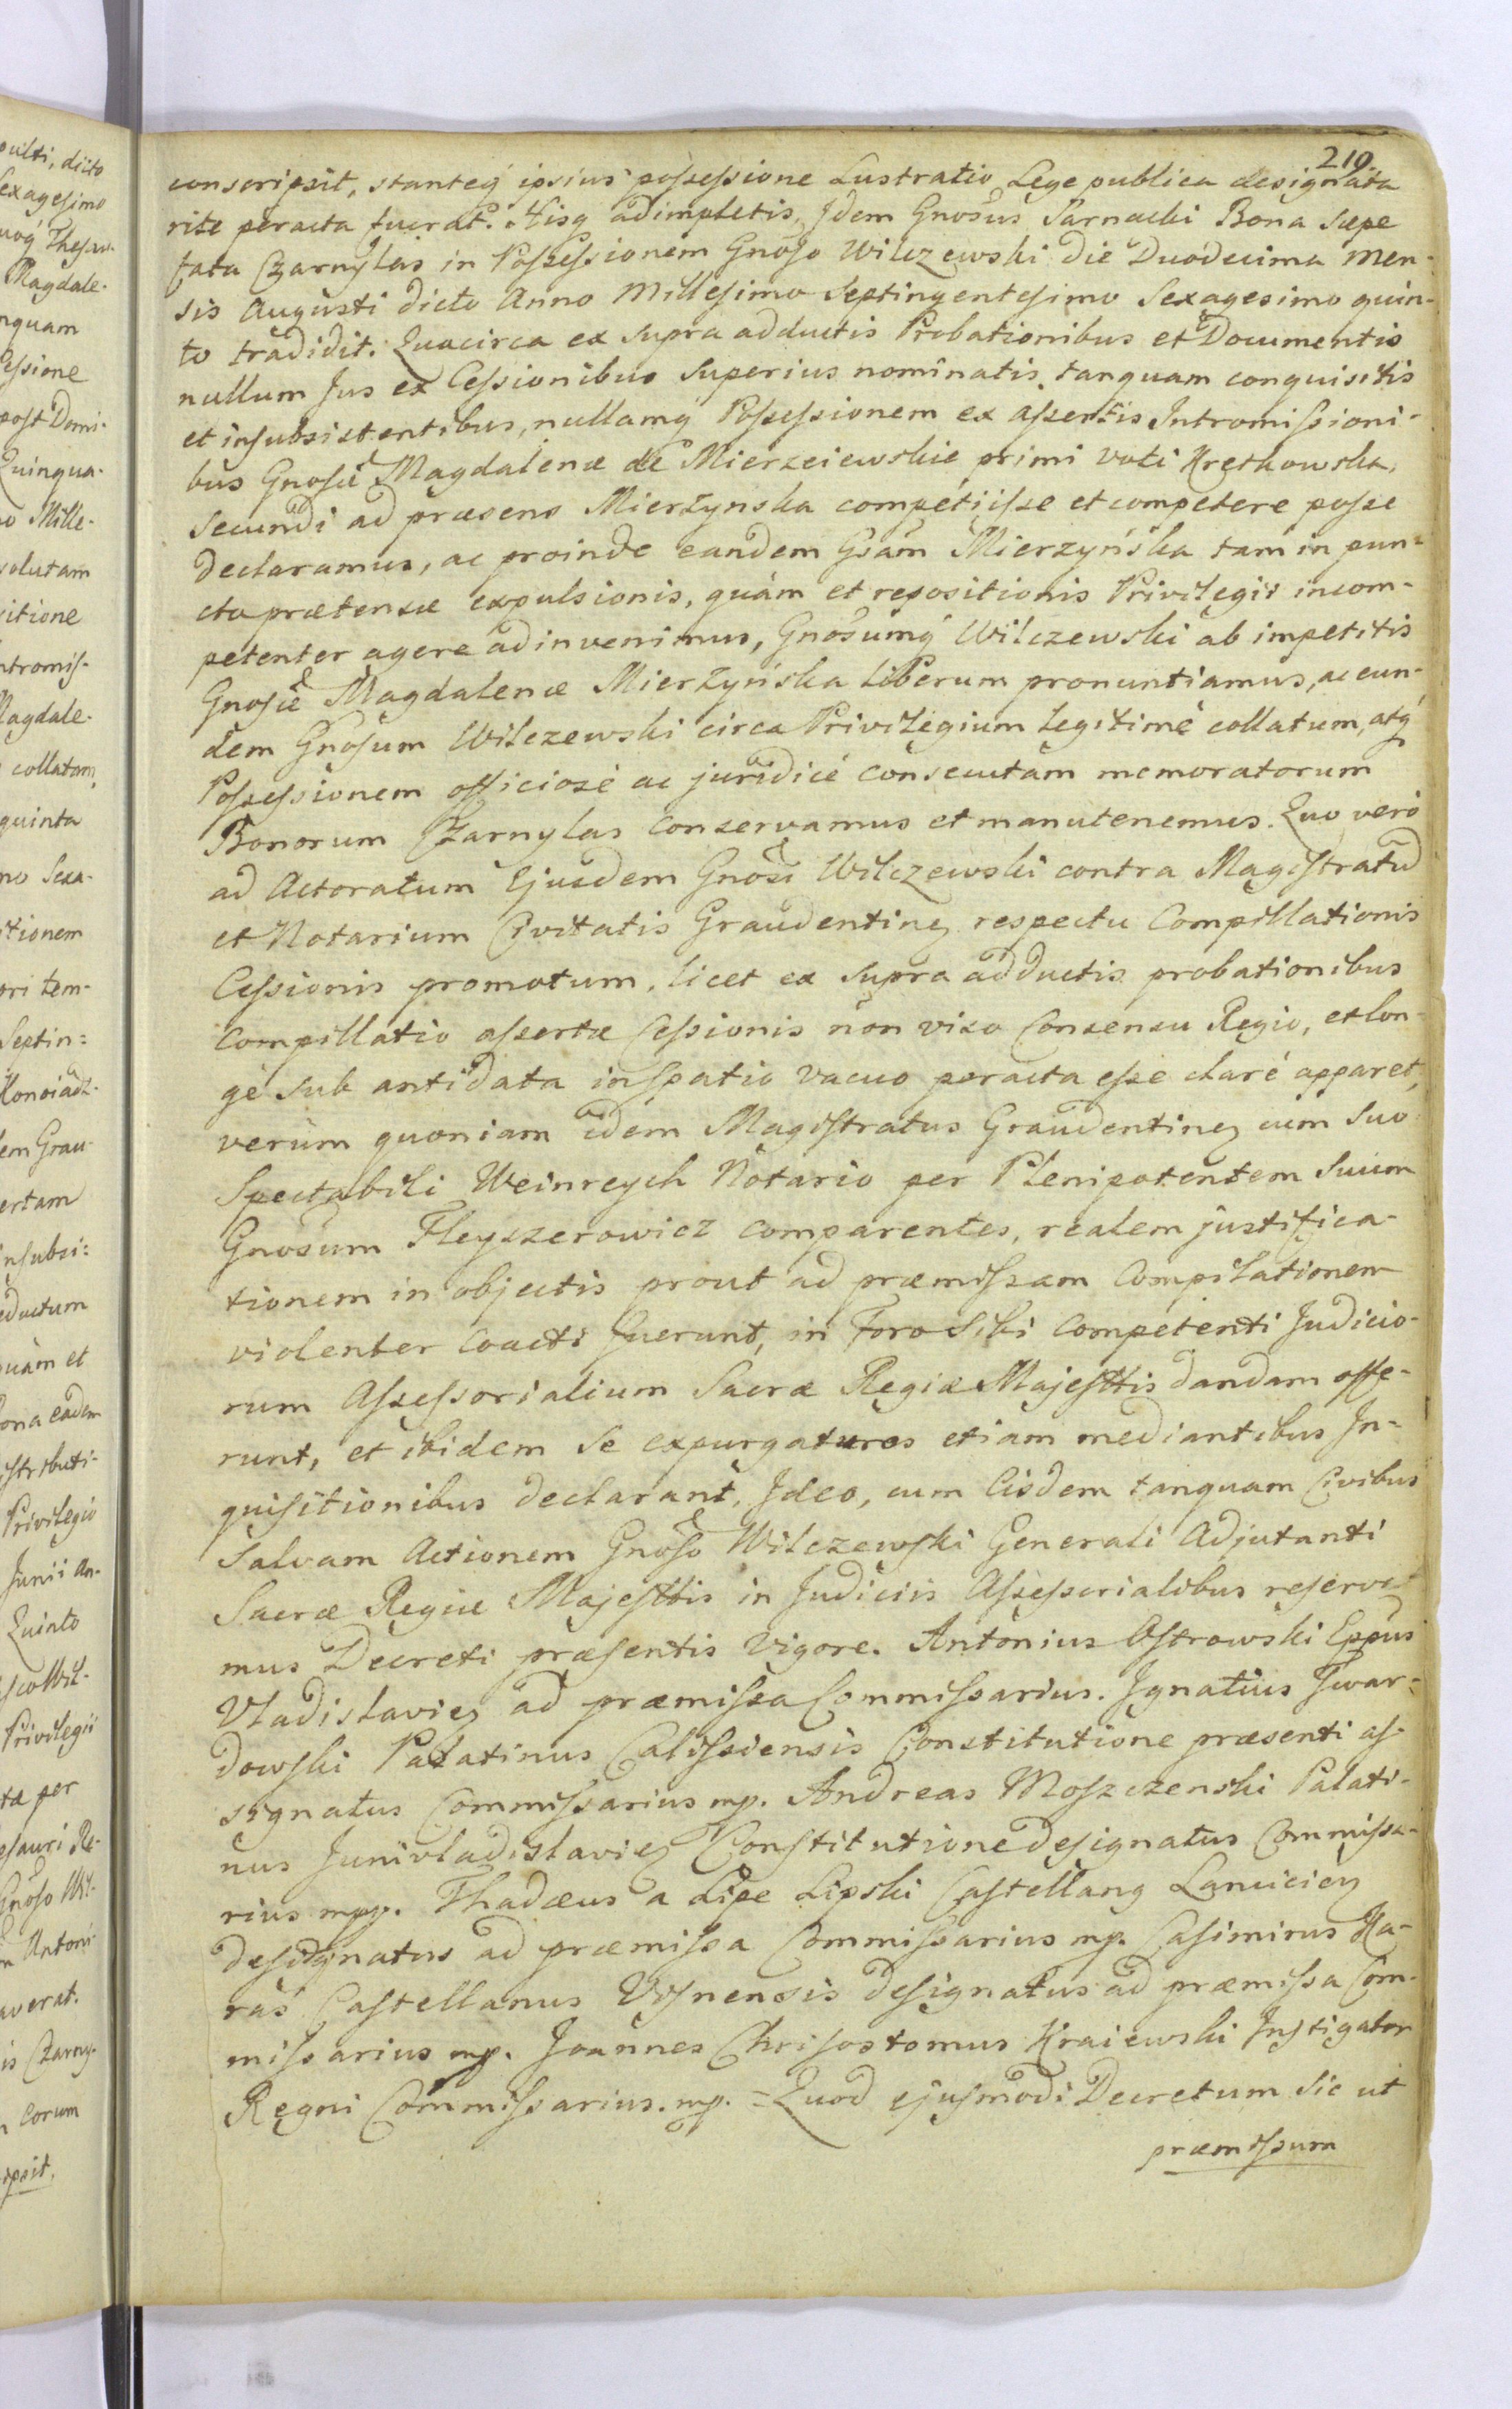 219.
conscripsit, stanteq ipsius possessione Lustratio Lege publica designata
rite peracta fuerat. Hisq adimpletis, Idem Gnosus Sarnacki Bona Sæpe
fata Czarnylas in Possessionem Gnoso Wilczewski die Duodecima Men-
sis Augusti dicto Anno Millesimo Septingentesimo Sexagesimo quin-
to tradidit. Quocirca ex supra adductis Probationibus et Documentis
nullum Jus ex Cessionibus Superius nominatis tanquam conquisitis
et insubsistentibus, nullamq Possessionem ex assertis Intromissioni-
bus Gnosæ Magdalenæ de Mierzeiewskie primi voti Kretkowska,
Secundi ad præsens Mierzynska competiisse et competere posse
declaramus, ac proinde eandem Gsam Mierzyńska tam in pun=
cto prætensæ expulsionis, quàm et repositionis Privilegii incom-
petenter agere adinvenimus, Gnosumq Wilczewski ab impetitis
Gnosæ Magdalenæ Mierzyńska liberum pronuntiamus, ac eun-
dem Gnosum Wilczewski circa Privilegium legitimè collatum, atq
Possessionem officiosè ac juridicè consecutam memoratorum
Bonorum Czarnylas conservamus et manutenemus. Quo verò
ad Actoratum Ejusdem Gnosi Wilczewski contra Magistratũ
et Notarium Civitatis Graudentinẽ respectu Compillationis
Cessionis promotum, licet ex supra adductis probationibus
Compillatio assertæ Cessionis non viso Consensu Regio, et lon-
gè sub antidata in spatio vacuo peracta esse clarè apparet,
verùm quoniam idem Magistratus Graudentinẽ cum Suo
Spectabili Weinreych Notario per Plenipotentem Suum
Gnosum Fleyszerowicz comparentes, realem justifica-
tionem in objectis prout ad præmissam Compilationem
violenter coacti fuerunt, in Foro Sibi Competenti Judicio-
rum Assessorialium Sacræ Regiæ Majesttis dandam offe-
runt, et ibidem se expurgaturos etiam mediantibus In-
quisitionibus declarant, Ideo, cum Eisdem tanquam Civibus
Salvam Actionem Gnoso Wilczewski Generali Adjutanti
Sacræ Regiæ Majesttis in Judiciis Assessorialibus reserva
mus Decreti præsentis vigore. Antonius Ostrowski Eppus
Vladislaviẽ ad præmissa Commissarius. Ignatius Twar-
dowski Palatinus Calissiensis Constitutione præsenti as-
signatus Commissarius mp. Andreas Moszczenski Palati-
nus Junivladislaviẽ Constitutione designatus Commissa-
rius mpp. Thadæus a Lipe Lipski Castellanq Lanciciẽ
designatus ad præmissa Commissarius mp. Casimirus Ka-
ras Castellanus Visnensis designatus ad præmissa Com-
missarius mp. Joannes Chrisostomus Kraiewski Instigator
Regni Commissarius. mp. = Quod ejusmodi Decretum Sic ut
præmissum